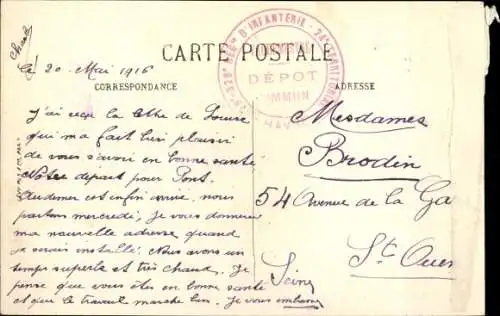 le 20 Mai 1916
CARTE POSTALE
CORRESPONDANCE
ADRESSE
D'INFANTERIE
DÉPOT
COMMUN
J'ai reçu la lettre de Louise
qui m'a fait bien plaisir
de vous savoir en bonne santé
Notre départ pour Pont
Audemer est enfin arrivé, nous
partons mercredi, je vous donnerai
ma nouvelle adresse quand
je serais installé. Nous avons un
temps superbe et très chaud. Je
pense que vous êtes en bonne santé
et que le travail marche bien. Je vous embrasse
Mesdames
Brodin
54 Avenue de la Ga
St Ouen
Seine